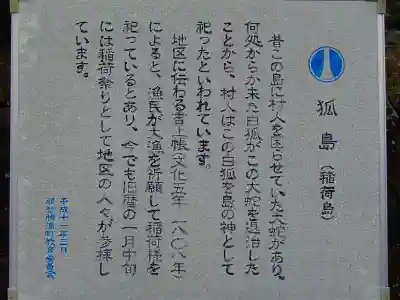 狐島(稲荷島)
昔この島に村人を困らせていた大蛇があり、
何処からか来た白狐がこの大蛇を退治した
ことから、村人はこの白狐を島の神として
祀ったといわれています。
地区に伝わる書上帳(文化五年 一八〇八年)
によると、漁民が大漁を祈願して稲荷様を
祀っているとあり、今でも旧暦の一月中旬
には稲荷祭りとして地区の人々が参拝し
ています。
平成十一年三月
那智勝浦町教育委員会